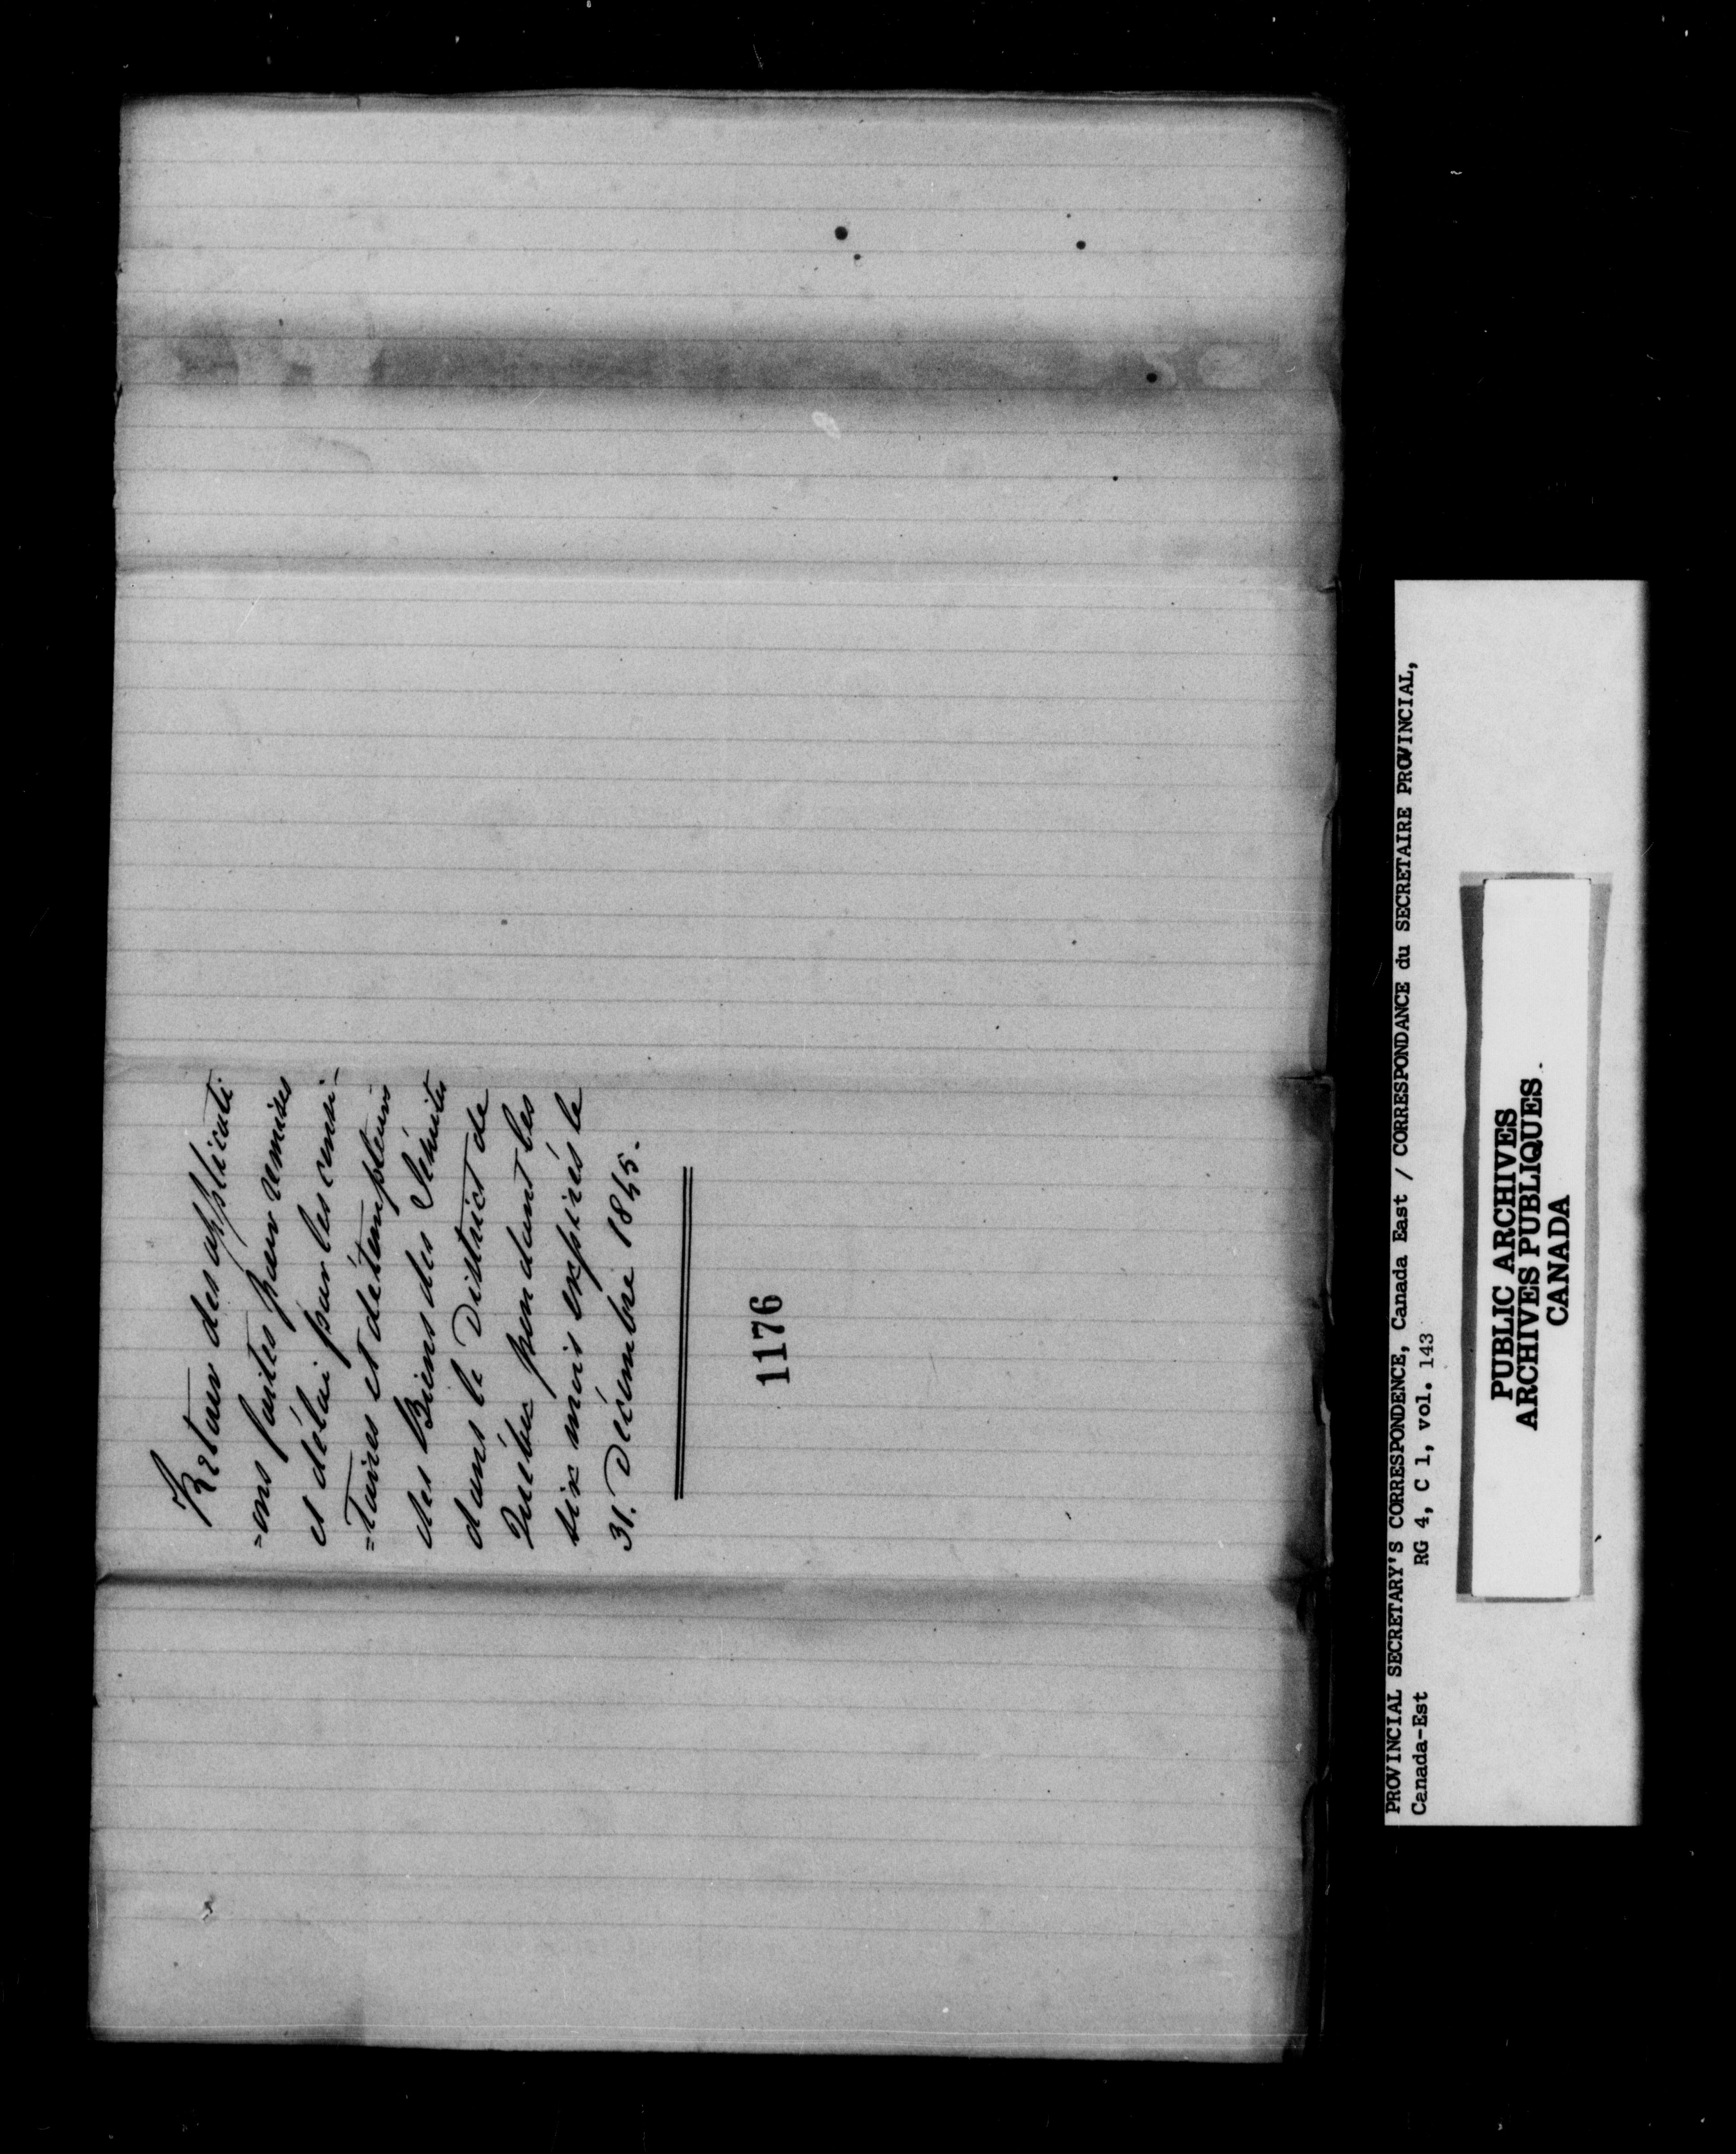 Retour des applicati
=ons faites pour remises
et délai par les censi-
=taires et détempteurs
des Biens des Jésuites
dans le District de
Québec pendant les
six mois expirés le
31. Décembre 1845.
1176
PROVINCIAL SECRETARY'S CORRESPONDENCE, Canada East / CORRESPONDANCE du SECRETAIRE PROVINCIAL,
Canada-Est RG 4, C 1, vol. 143
PUBLIC ARCHIVES
ARCHIVES PUBLIQUES
CANADA